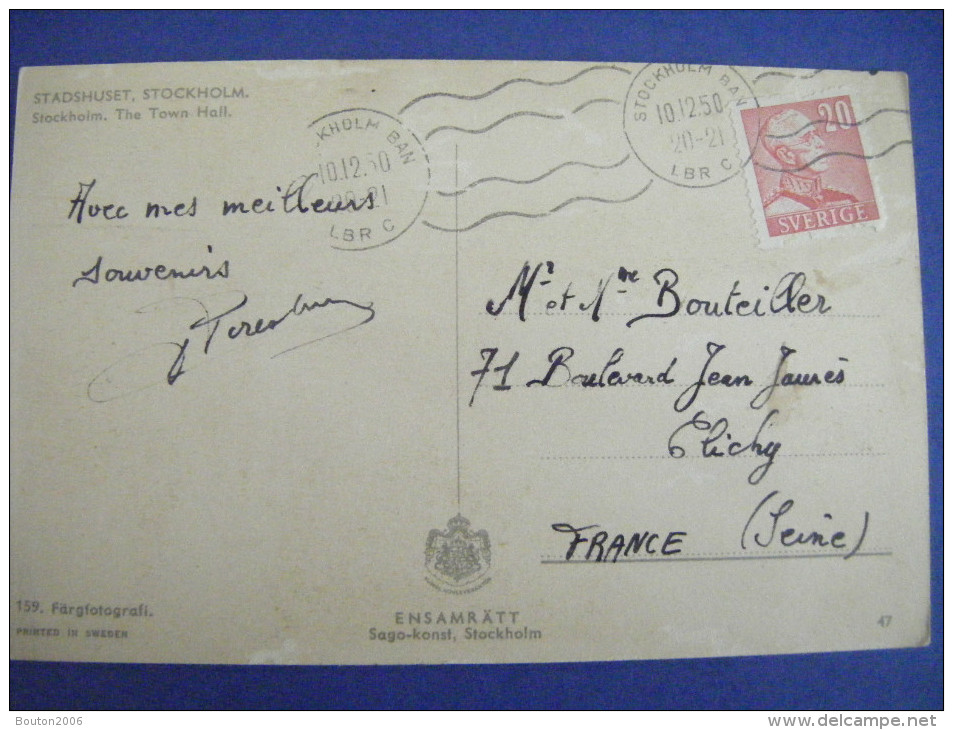 STADSHUSET, STOCKHOLM.
Stockholm. The Town Hall.
STOCKHOLM BAN
10.12.50
20-21
LBR C
KHOLM BAN
10.12.50
20-21
LBR C
20
SVERIGE
Avec mes meilleurs
souvenirs
Mr et Mme Bouteiller
71 Boulevard Jean Jaurès
Clichy
(Seine)
FRANCE
159. Färgfotografi.
PRINTED IN SWEDEN
ENSAMRÄTT
Sago-konst, Stockholm
47
Bouton2006
www.delcampe.net